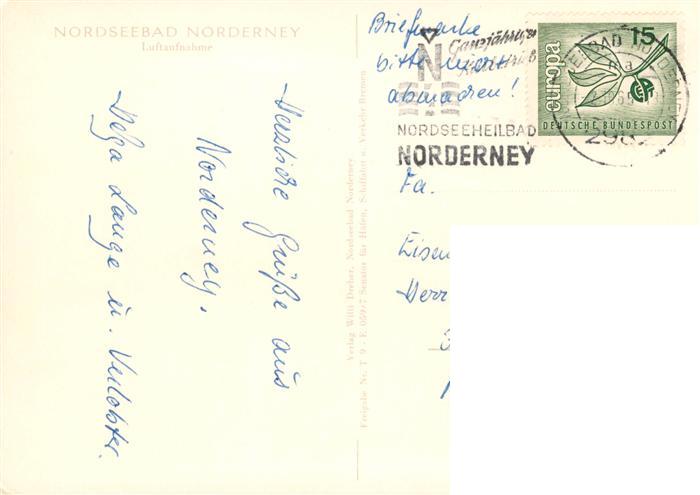 NORDSEEBAD NORDERNEY
Luftaufnahme
Herzliche Grüße aus
Norderney.
Helga Lange u. Verlobter.
Verlag Willi Dreher, Nordseebad Norderney
Freigabe Nr. T 9 - E 059/7 Senator für Häfen, Schiffahrt u. Verkehr Bremen
Briefmarke
bitte nicht
abmachen!
Ganzjähriger
N
NORDSEEHEILBAD
NORDERNEY
15
europa
DEUTSCHE BUNDESPOST
Fa.
Eisen
Herr